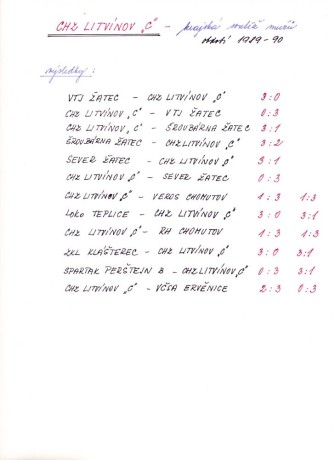 CHZ LITVÍNOV „C“ - krajská soutěž mužů
období 1989-90
výsledky:
VTJ ŽATEC - CHZ LITVÍNOV „C“ 3:0
CHZ LITVÍNOV „C“ - VTJ ŽATEC 0:3
CHZ LITVÍNOV „C“ - ŠROUBÁRNA ŽATEC 3:1
ŠROUBÁRNA ŽATEC - CHZ LITVÍNOV „C“ 3:2
SEVER ŽATEC - CHZ LITVÍNOV „C“ 3:1
CHZ LITVÍNOV „C“ - SEVER ŽATEC 0:3
CHZ LITVÍNOV „C“ - VEROS CHOMUTOV 1:3 1:3
LOKO TEPLICE - CHZ LITVÍNOV „C“ 3:0 3:1
CHZ LITVÍNOV „C“ - RH CHOMUTOV 1:3 1:3
ZKL KLÁŠTEREC - CHZ LITVÍNOV „C“ 3:0 3:1
SPARTAK PERŠTEJN B - CHZ LITVÍNOV „C“ 0:3 3:1
CHZ LITVÍNOV „C“ - VČSA ERVĚNICE 2:3 0:3